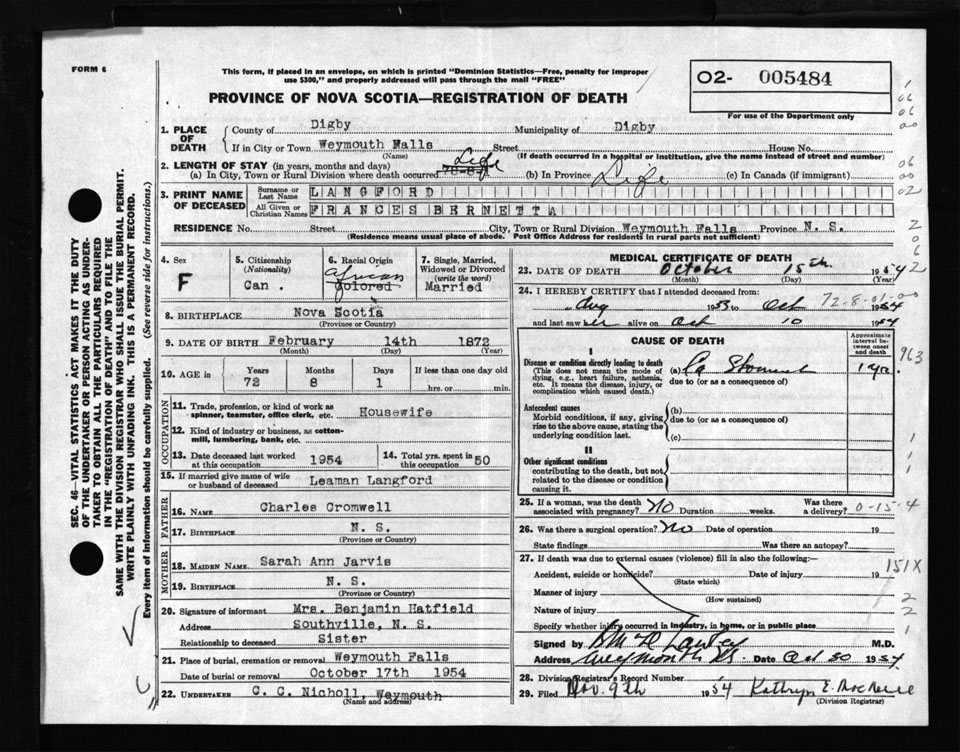 FORM 6
This form, if placed in an envelope, on which is printed "Dominion Statistics—Free, penalty for improper
use $300," and properly addressed will pass through the mail "FREE"
02- 005484
For use of the Department only
PROVINCE OF NOVA SCOTIA—REGISTRATION OF DEATH
1. PLACE OF DEATH { County of Digby Municipality of Digby
If in City or Town Weymouth Falls Street House No.
(Name) (If death occurred in a hospital or institution, give the name instead of street and number)
2. LENGTH OF STAY (in years, months and days)
(a) In City, Town or Rural Division where death occurred 72-8-1 Life (b) In Province Life (c) In Canada (if immigrant)
3. PRINT NAME OF DECEASED
Surname or Last Name LANGFORD
All Given or Christian Names FRANCES BERNETTA
RESIDENCE No. Street City, Town or Rural Division Weymouth Falls Province N. S.
(Residence means usual place of abode. Post Office Address for residents in rural parts not sufficient)
4. Sex F
5. Citizenship (Nationality) Can.
6. Racial Origin African Colored
7. Single, Married, Widowed or Divorced (write the word) Married
8. BIRTHPLACE Nova Scotia
(Province or Country)
9. DATE OF BIRTH February 14th 1872
(Month) (Day) (Year)
10. AGE in Years 72 Months 8 Days 1 If less than one day old hrs. or min.
OCCUPATION
11. Trade, profession, or kind of work as spinner, teamster, office clerk, etc. Housewife
12. Kind of industry or business, as cotton-mill, lumbering, bank, etc.
13. Date deceased last worked at this occupation 1954
14. Total yrs. spent in this occupation 50
15. If married give name of wife or husband of deceased Leaman Langford
FATHER
16. NAME Charles Cromwell
17. BIRTHPLACE N. S.
(Province or Country)
MOTHER
18. MAIDEN NAME Sarah Ann Jarvis
19. BIRTHPLACE N. S.
(Province or Country)
20. Signature of informant Mrs. Benjamin Hatfield
Address Southville, N. S.
Relationship to deceased Sister
21. Place of burial, cremation or removal Weymouth Falls
Date of burial or removal October 17th 1954
22. UNDERTAKER C. C. Nicholl, Weymouth
(Name and address)
MEDICAL CERTIFICATE OF DEATH
23. DATE OF DEATH October 15th 1954
(Month) (Day) (Year)
24. I HEREBY CERTIFY that I attended deceased from:
Aug 1953 to Oct 1954
72-8-01-00
and last saw her alive on Oct 10 1954
CAUSE OF DEATH
Approximate interval between onset and death
I
Disease or condition directly leading to death
(This does not mean the mode of dying, e.g., heart failure, asthenia, etc. It means the disease, injury, or complication which caused death.)
(a) Ca Stomach 1 yr.
due to (or as a consequence of)
Antecedent causes
Morbid conditions, if any, giving rise to the above cause, stating the underlying condition last.
(b)
due to (or as a consequence of)
(c)
II
Other significant conditions
contributing to the death, but not related to the disease or condition causing it.
25. If a woman, was the death associated with pregnancy? No Duration weeks. Was there a delivery? 0-15-4
26. Was there a surgical operation? No Date of operation 19
State findings Was there an autopsy?
27. If death was due to external causes (violence) fill in also the following:
Accident, suicide or homicide? Date of injury 19
(State which)
151X
Manner of injury
(How sustained)
Nature of injury
Specify whether injury occurred in industry, in home, or in public place
Signed by M.D.
Address Weymouth NS Date Oct 30 1954
28. Division Registrar's Record Number
29. Filed Nov. 9th 1954 Kathryn E.
(Division Registrar)
963
SEC. 46- VITAL STATISTICS ACT MAKES IT THE DUTY
OF THE UNDERTAKER OR PERSON ACTING AS UNDER-
TAKER TO OBTAIN ALL THE PARTICULARS REQUIRED
IN THE "REGISTRATION OF DEATH" AND TO FILE THE
SAME WITH THE DIVISION REGISTRAR WHO SHALL ISSUE THE BURIAL PERMIT.
WRITE PLAINLY WITH UNFADING INK. THIS IS A PERMANENT RECORD.
Every item of information should be carefully supplied. (See reverse side for instructions.)